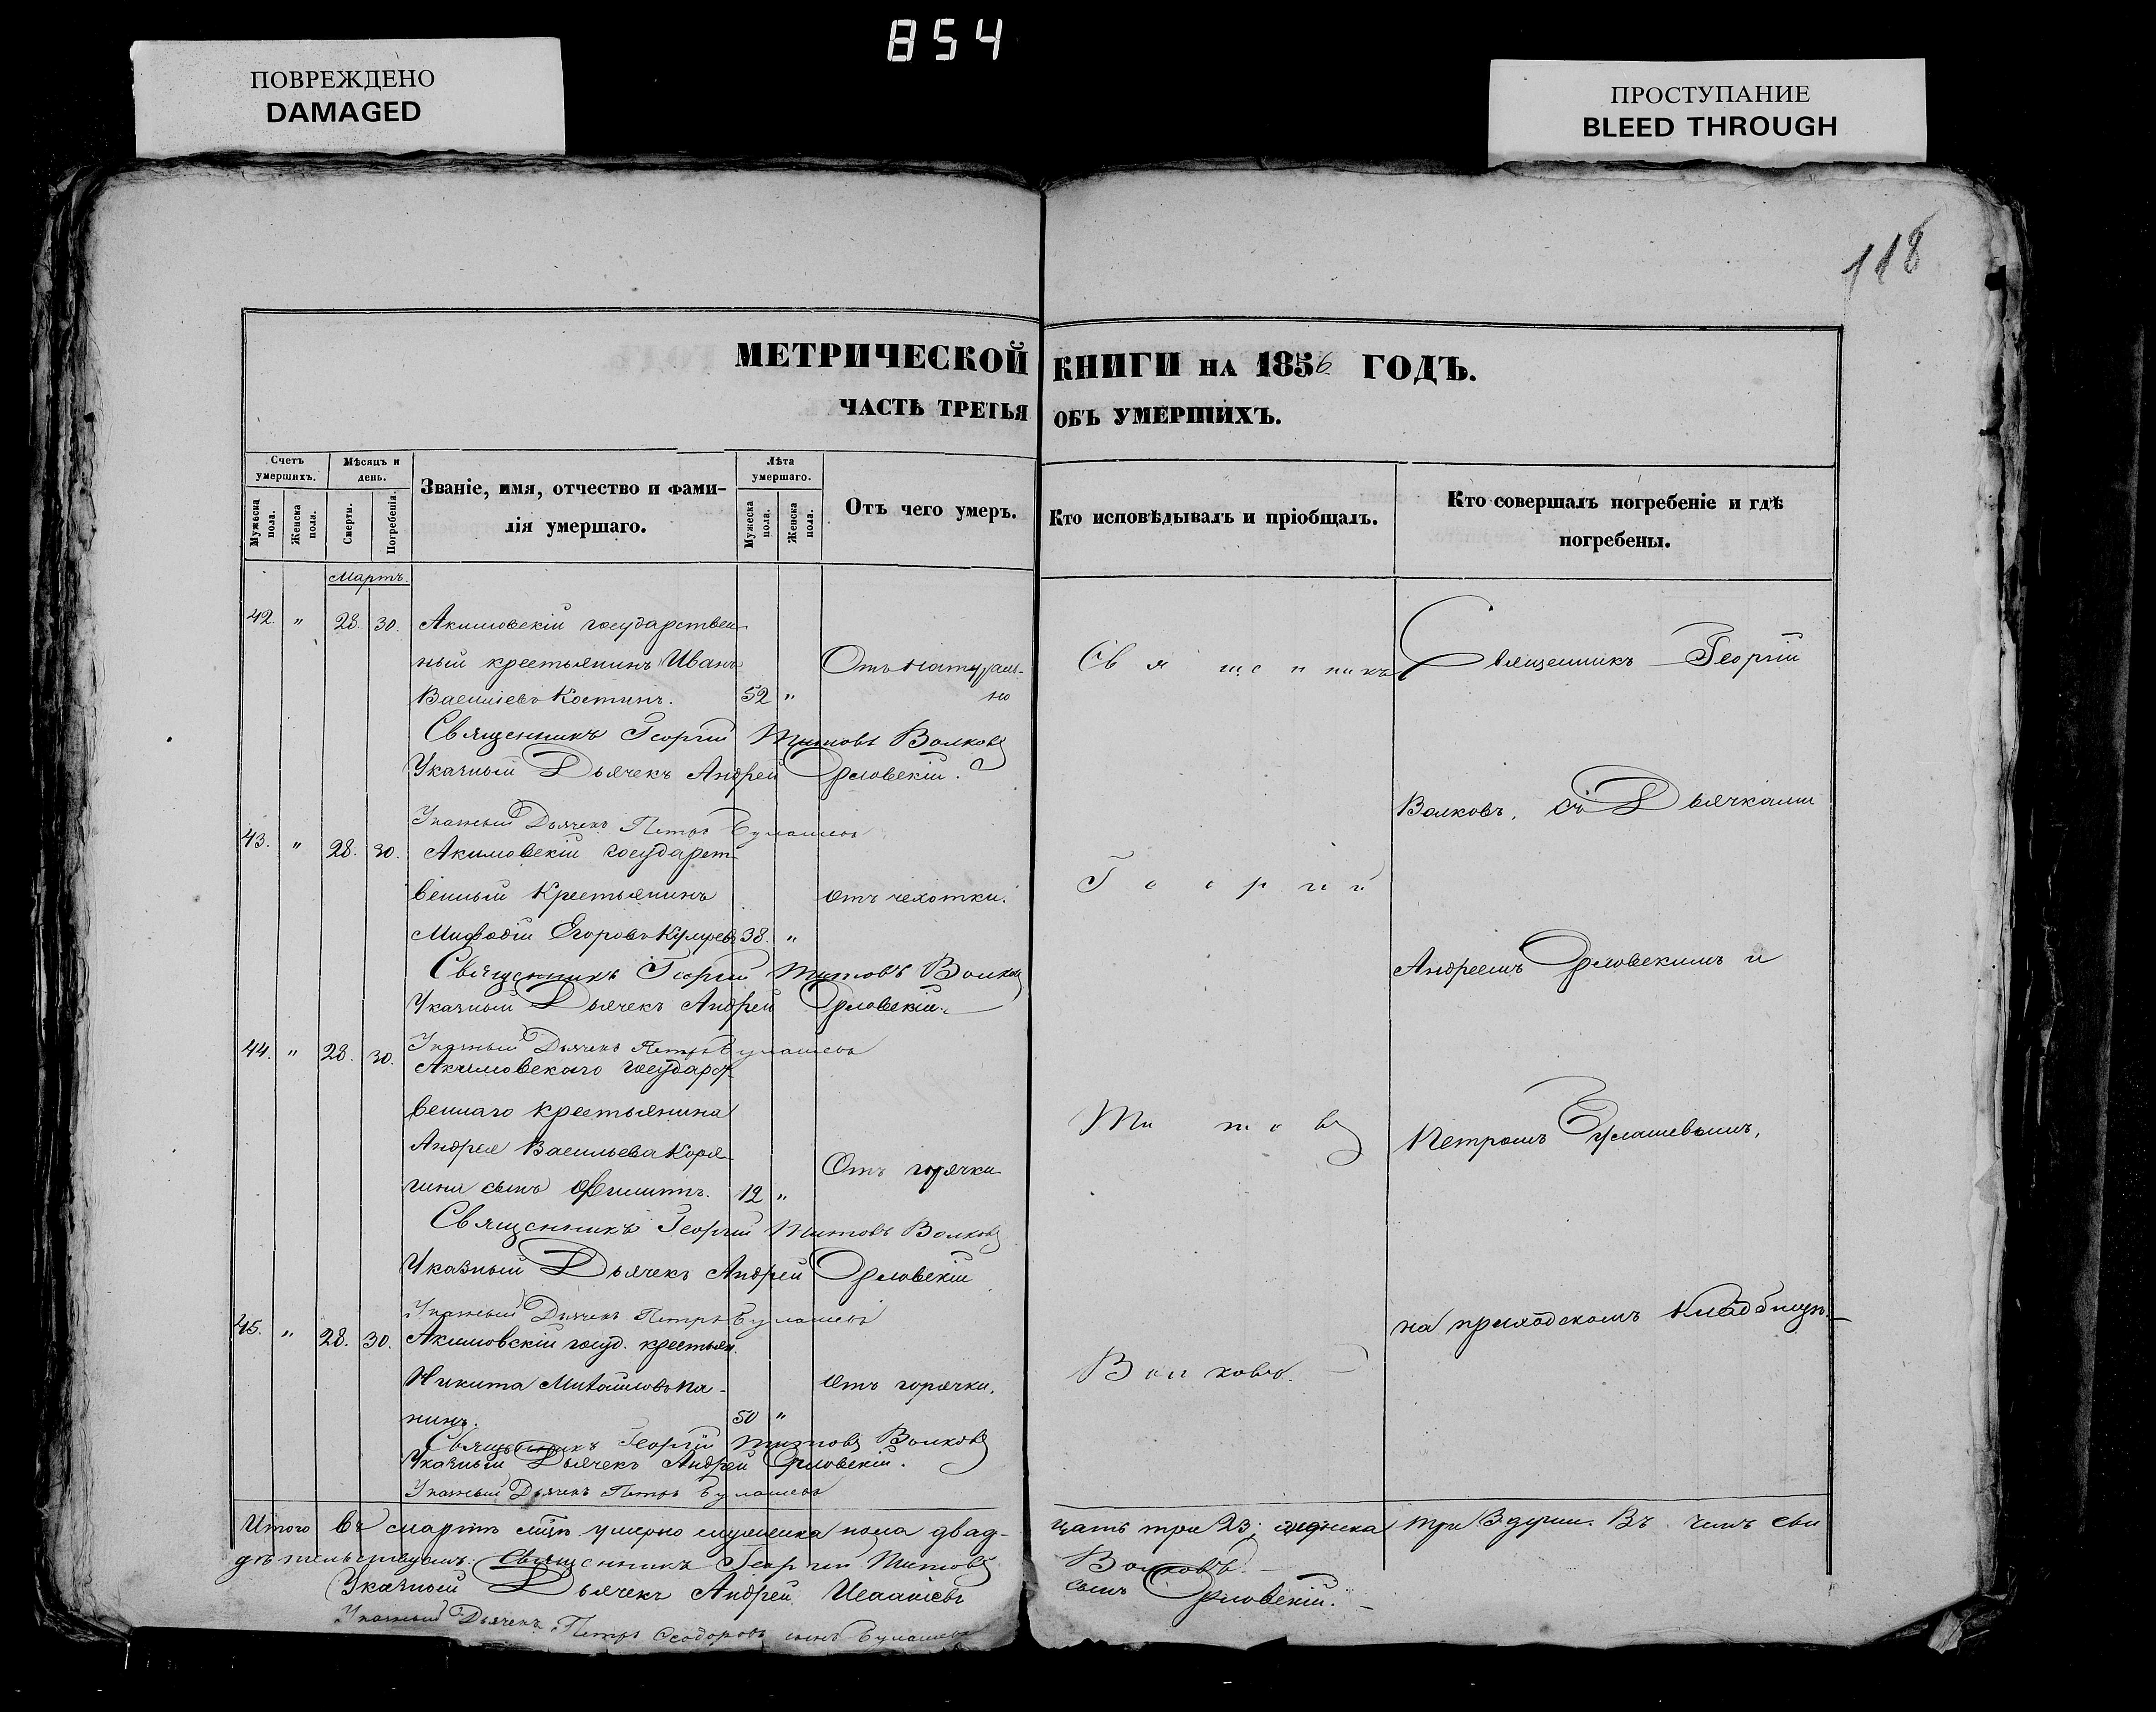 854
ПОВРЕЖДЕНО
DAMAGED
ПРОСТУПАНИЕ
BLEED THROUGH
118
МЕТРИЧЕСКОЙ КНИГИ НА 1856 ГОДЪ.
ЧАСТЬ ТРЕТЬЯ ОБЪ УМЕРШИХЪ.
Счетъ умершихъ.
Мужеска пола.
Женска пола.
Мѣсяцъ и день.
Смерти.
Погребенія.
Званіе, имя, отчество и фами-
лія умершаго.
Лѣта умершаго.
Мужеска пола.
Женска пола.
Отъ чего умеръ.
Кто исповѣдывалъ и пріобщалъ.
Кто совершалъ погребеніе и гдѣ
погребены.
Мартъ.
42. " 28. 30. Акимовскій государствен-
ный крестьянинъ Иванъ Отъ натураль-
Васильевъ Костинъ. 52 " но
Священникъ Георгій Титовъ Волковъ
Указный Дьячекъ Андрей Орловскій.
Указный Дьячекъ Петръ Булашевъ
43. " 28. 30. Акимовскій государст-
венный Крестьянинъ отъ чехотки.
Мифодій Егоровъ 38. "
Священникъ Георгій Титовъ Волковъ
Указный Дьячекъ Андрей Орловскій.
Указный Дьячекъ Петръ Булашевъ
44. " 28. 30. Акимовского государст-
веннаго крестьянина
Андрея Васильева Коря-
гина сынъ Филиппъ. 12 " Отъ горячки
Священникъ Георгій Титовъ Волковъ
Указный Дьячекъ Андрей Орловскій
Указный Дьячекъ Петръ Булашевъ
45. " 28. 30. Акимовскій госуд. крестьян.
Никита Михайловъ Па- отъ горячки.
нинъ. 50 "
Священникъ Георгій Титовъ Волковъ
Указный Дьячекъ Андрей Орловскій.
Указный Дьячекъ Петръ Булашевъ
Священникъ
Георгій
Титовъ
Волковъ.
Священникъ Георгій
Волковъ, съ Дьячками
Андреемъ Орловскимъ и
Петромъ Булашевымъ,
на приходскомъ кладбищѣ.
Итого въ мартѣ мцѣ умерло мужеска пола двад-
цать три 23; женска три 3 души. Въ чемъ сви
дѣтельствуемъ: Священникъ Георгій Титовъ Волковъ.
Указный Дьячекъ Андрей Исаіевъ сынъ Орловскій.
Указный Дьячекъ Петръ Ѳеодоровъ сынъ Булашевъ